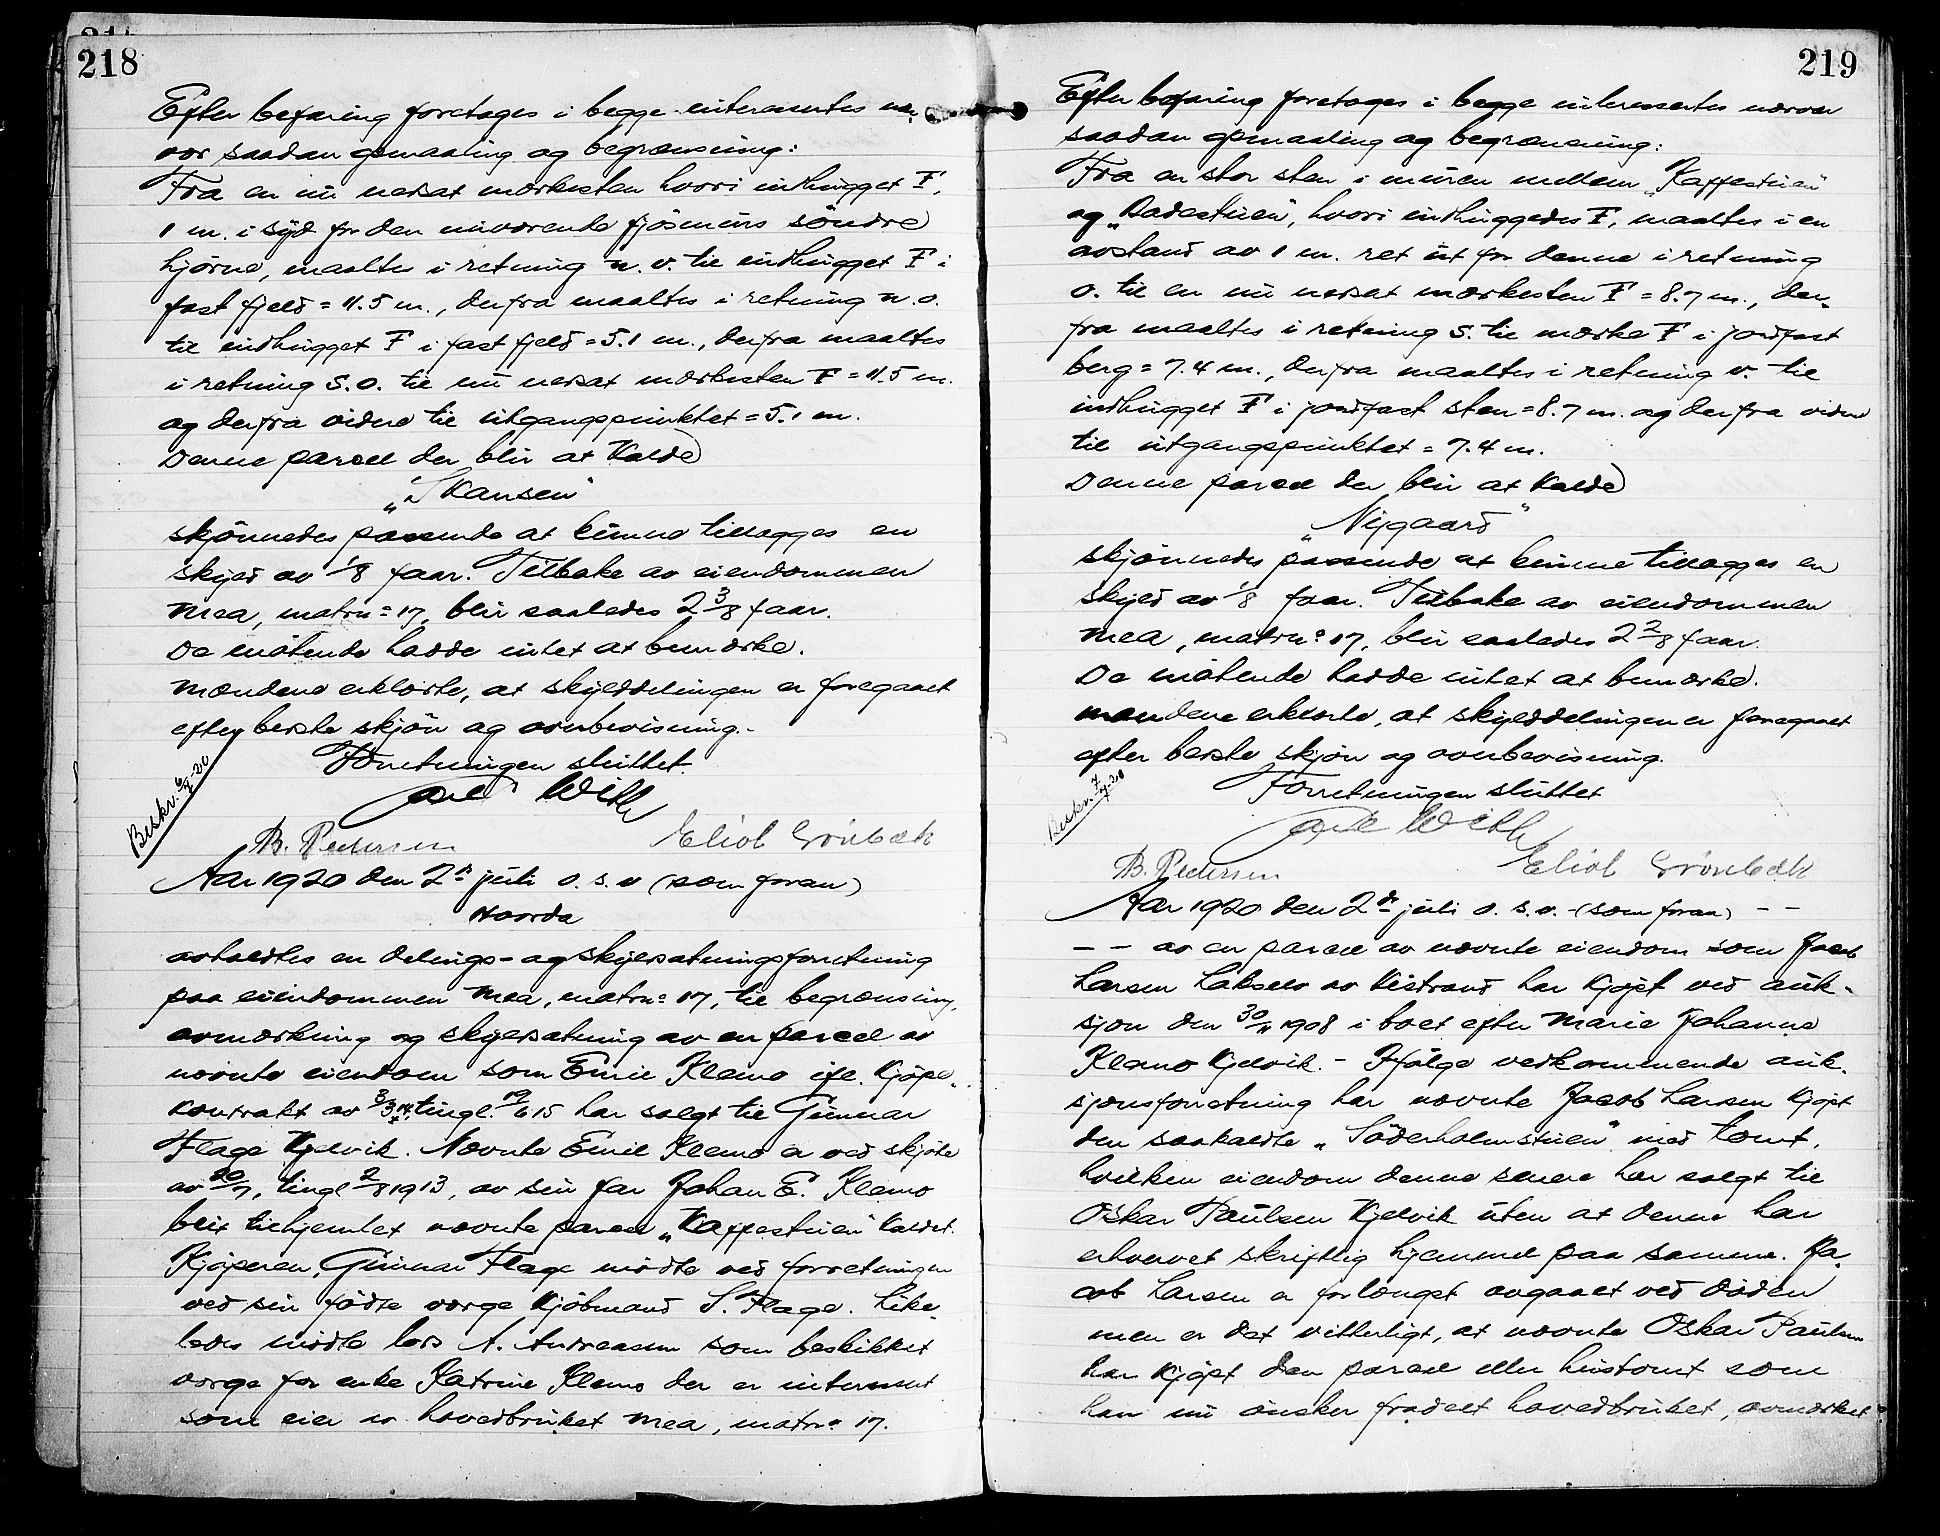 218
Efter befaring foretages i begge interessertes nær-
vær saadan opmaaling og begrænsning:
Fra en nu nedsat mærkesten hvori indhugget F,
1 m. i syd for den nuværende fjøsmurs søndre
hjørne, maaltes i retning n. v. til indhugget F i
fast fjeld = 11.5 m., derfra maaltes i retning n.o.
til indhugget F i fast fjeld = 5.1 m., derfra maaltes
i retning s.o. til nu nedsat mærkesten F = 11.5 m.
og derfra videre til utgangspunktet = 5.1 m.
Denne parcel der blir at kalde
„Skansen"
skjønnedes passende at kunne tillægges en
skyld av 1/8 faar. Tilbake av eiendommen
Mea, matrn: 17, blir saaledes 2 3/8 faar.
De møtende hadde intet at bemærke.
Mændene erklærte, at skylddelingen er foregaaet
efter beste skjøn og overbevisning.-
Forretningen sluttet.
Beskr. 6/7-20
Carl With
B. Pedersen Eliot Grönbæk
Aar 1920 den 2n juli o. s. v (som foran)
Haarda
avholdtes en delings- og skyldsætningsforretning
paa eiendommen Mea, matrn: 17, til begrænsning,
avmærkning og skyldsætning av en parcel av
nævnte eiendom som Emil Klemo ifl. kjøpe-
kontrakt av tingl. 19/6 15 har solgt til Gunnar
Flage Kjelvik. Nævnte Emil Klemo er ved skjøte
av 20/7, tingl 2/8 1913, av sin far Johan E. Klemo
blit tilhjemlet nævnte parcel „Kaffestuen" kaldet.
Kjøperen, Gunnar Flage mødte ved forretningen
ved sin fødte værge kjøbmand S. Flage. Like-
ledes mødte lods A. Andreassen som beskikket
værge for enke Katrine Klemo der er interessert
som eier av hovedbruket Mea, matrn: 17.
219
Efter befaring foretages i begge interessertes nærvær
saadan opmaaling og begrænsning:
Fra en stor sten i muren mellem „Kaffestuen"
og „Badestuen", hvori indhuggedes F, maaltes i en
avstand av 1 m. ret ut for denne i retning
o. til en nu nedsat mærkesten F = 8.7 m., der-
fra maaltes i retning s. til mærke F i jordfast
berg = 7.4 m., derfra maaltes i retning v. til
indhugget F i jordfast sten = 8.7 m. og derfra videre
til utgangspunktet = 7.4 m.
Denne parcel der blir at kalde
„Nygaard"
skjønnedes passende at kunne tillægges en
skyld av 1/8 faar. Tilbake av eiendommen
Mea, matrn: 17, blir saaledes 2 2/8 faar.
De møtende hadde intet at bemærke.
Mændene erklærte, at skylddelingen er foregaaet
efter beste skjøn og overbevisning.
Forretningen sluttet
Beskr. 7/7-20
Carl With
B. Pedersen Eliot Grönbæk
Aar 1920 den 2de juli o. s. v. - (som foran) - -
- - av en parcel av nævnte eiendom som Jacob
Larsen Lakselv av Kistrand har kjøpt ved auk-
sjon den 30/11 1908 i boet efter Marie Johanne
Klemo Kjelvik. - Ifølge vedkommende auk-
sjonsforretning har nævnte Jacob Larsen kjøpt
den saakaldte „Söderholmstuen" med tomt,
hvilken eiendom denne senere har solgt til
Oskar Paulsen Kjelvik uten at denne har
erhvervet skriftlig hjemmel paa samme. Ja-
cob Larsen er forlængst avgaaet ved døden
men er det vitterligt, at nævnte Oskar Paulsen
har kjøpt den parcel eller hustomt som
han nu ønsker fradelt hovedbruket, avmærket